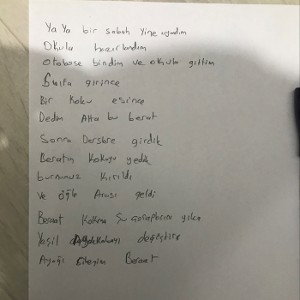 Ya Ya bir sabah yine uyandım
Okula hazırlandım
Otobüse bindim ve okula gittim
Sınıfa girince
Bir koku esince
Dedim Aha bu berat
Sonra Derslere girdik
Beratın Kokuyu yedik
burnumuz Kırıldı
Ve öğle Arası geldi
Beraat Kokma Şu çoraplarını yıka
Yeşil değiştir
Ayağı Beraat